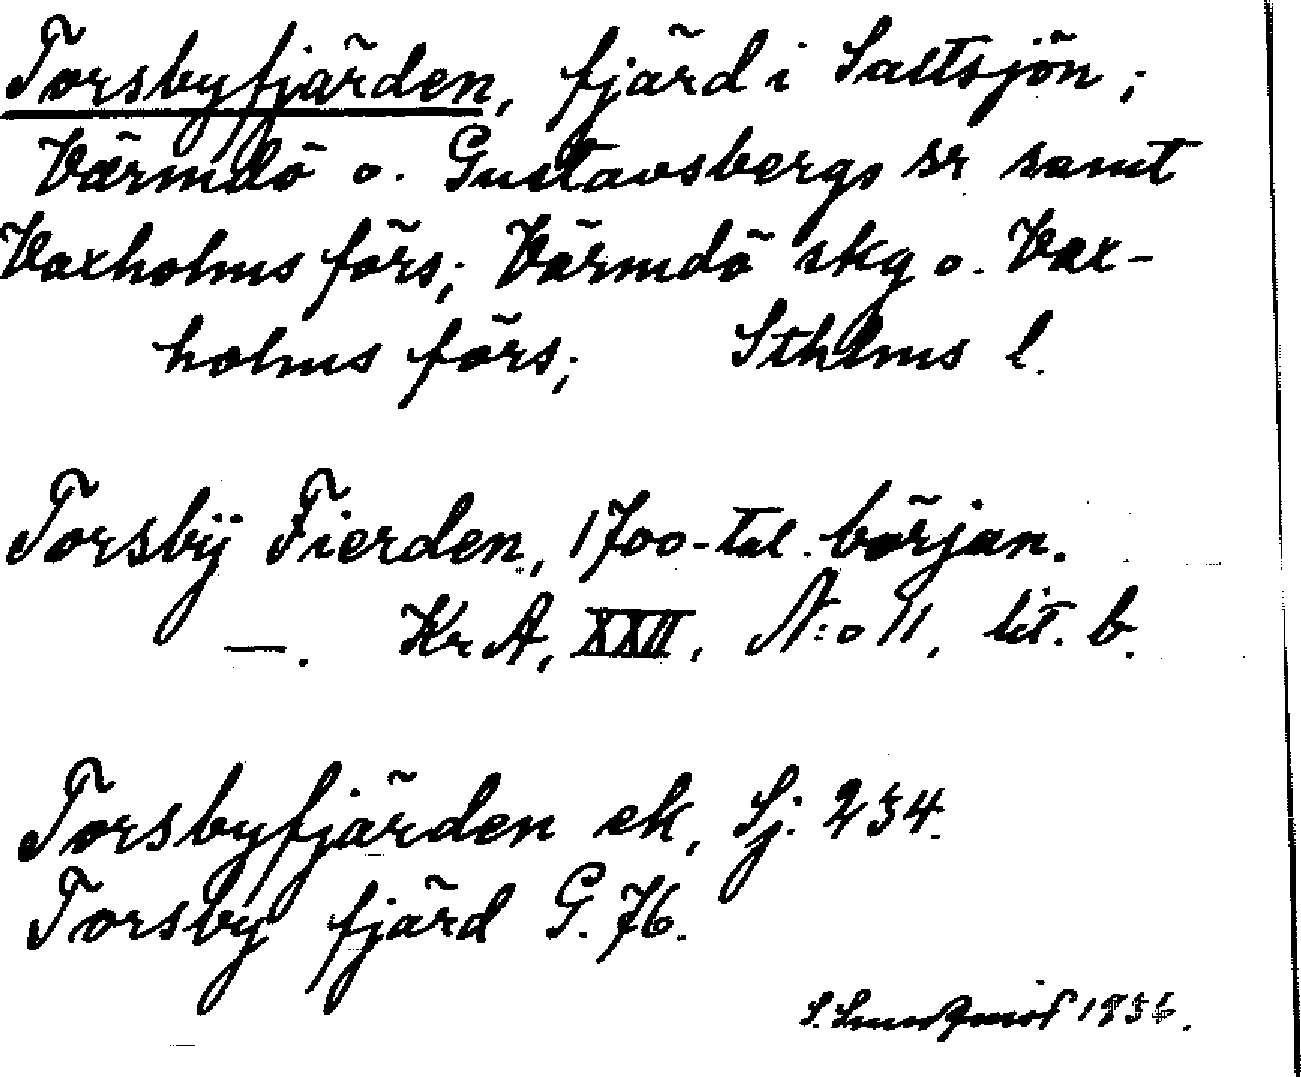 Torsbyfjärden, fjärd i Saltsjön;
Värmdö o. Gustavsbergs sr samt
Vaxholms förs; Värmdö skg o. Vax-
holms förs; Sthlms l.
Torsbÿ Fierden, 1700-tal. början.
—. KrA, XXII, N:o 11, lit. b.
Torsbyfjärden ek, Sj. 234.
Torsby fjärd G. 76.
S. 1936.